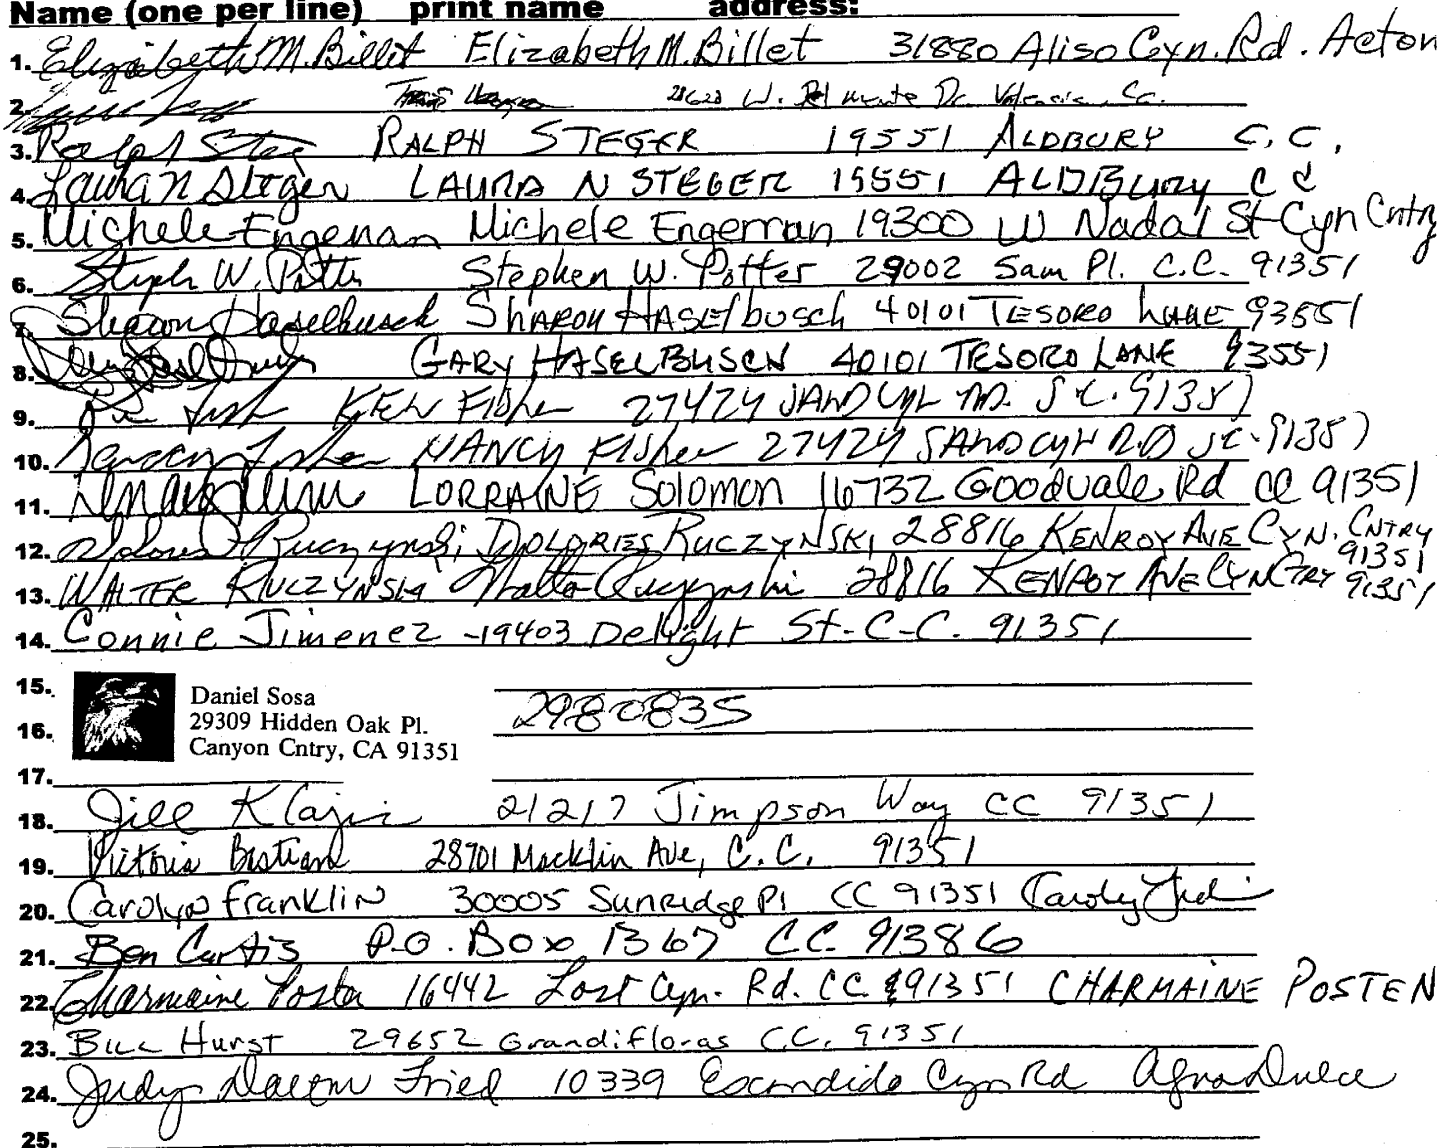 Name (one per line) print name address:
1. Elizabeth M. Billet Elizabeth M. Billet 31880 Aliso Cyn. Rd. Acton
2. W. Del Monte Dr. Valencia, Ca.
3. Ralph Steg RALPH STEGER 19551 ALDBURY C.C.
4. Laura N Steger LAURA N STEGER 19551 ALDBURY C C
5. Michele Engeman Michele Engeman 19300 W Nadal St Cyn Cntry
6. Stephen W. Potter Stephen W. Potter 29002 Sam Pl. C.C. 91351
7. Sharon Haselbusch SHARON HASElbusch 40101 TESORO LANE 93551
8. GARY HASELBUSCH 40101 TESORO LANE 93551
9. KEN FISher 27424 SAND CYN RD. S C. 91387
10. Nancy Fisher NANCY FISher 27424 SAND CYN RD SC. 91387
11. LORRAINE Solomon 16732 Goodvale Rd CC 91351
12. Dolores Ruczynski DOLORES RUCZYNSKI 28816 KENROY AVE CYN. CNTRY 91351
13. WALTER RUCZYNSKI Walter Ruczynski 28816 KENROY AVE CYN CTRY 91351
14. Connie Jimenez -19403 Delight St-C-C. 91351
15.
Daniel Sosa
29309 Hidden Oak Pl.
16. 2980835
Canyon Cntry, CA 91351
17.
18. Jill Klajic 21217 Jimpson Way CC 91351
19. Victoria Bastian 28701 Mecklin Ave, C.C. 91351
20. Carolyn Franklin 30005 Sunridge Pl CC 91351
21. Ben Curtis P.O. Box 1367 C.C. 91386
22. Charmaine Posten 16442 Lost Cyn. Rd. CC. 91351 CHARMAINE POSTEN
23. Bill Hurst 29652 Grandifloras C.C. 91351
24. Judy Fried 10339 Escondido Cyn Rd Agua Dulce
25.